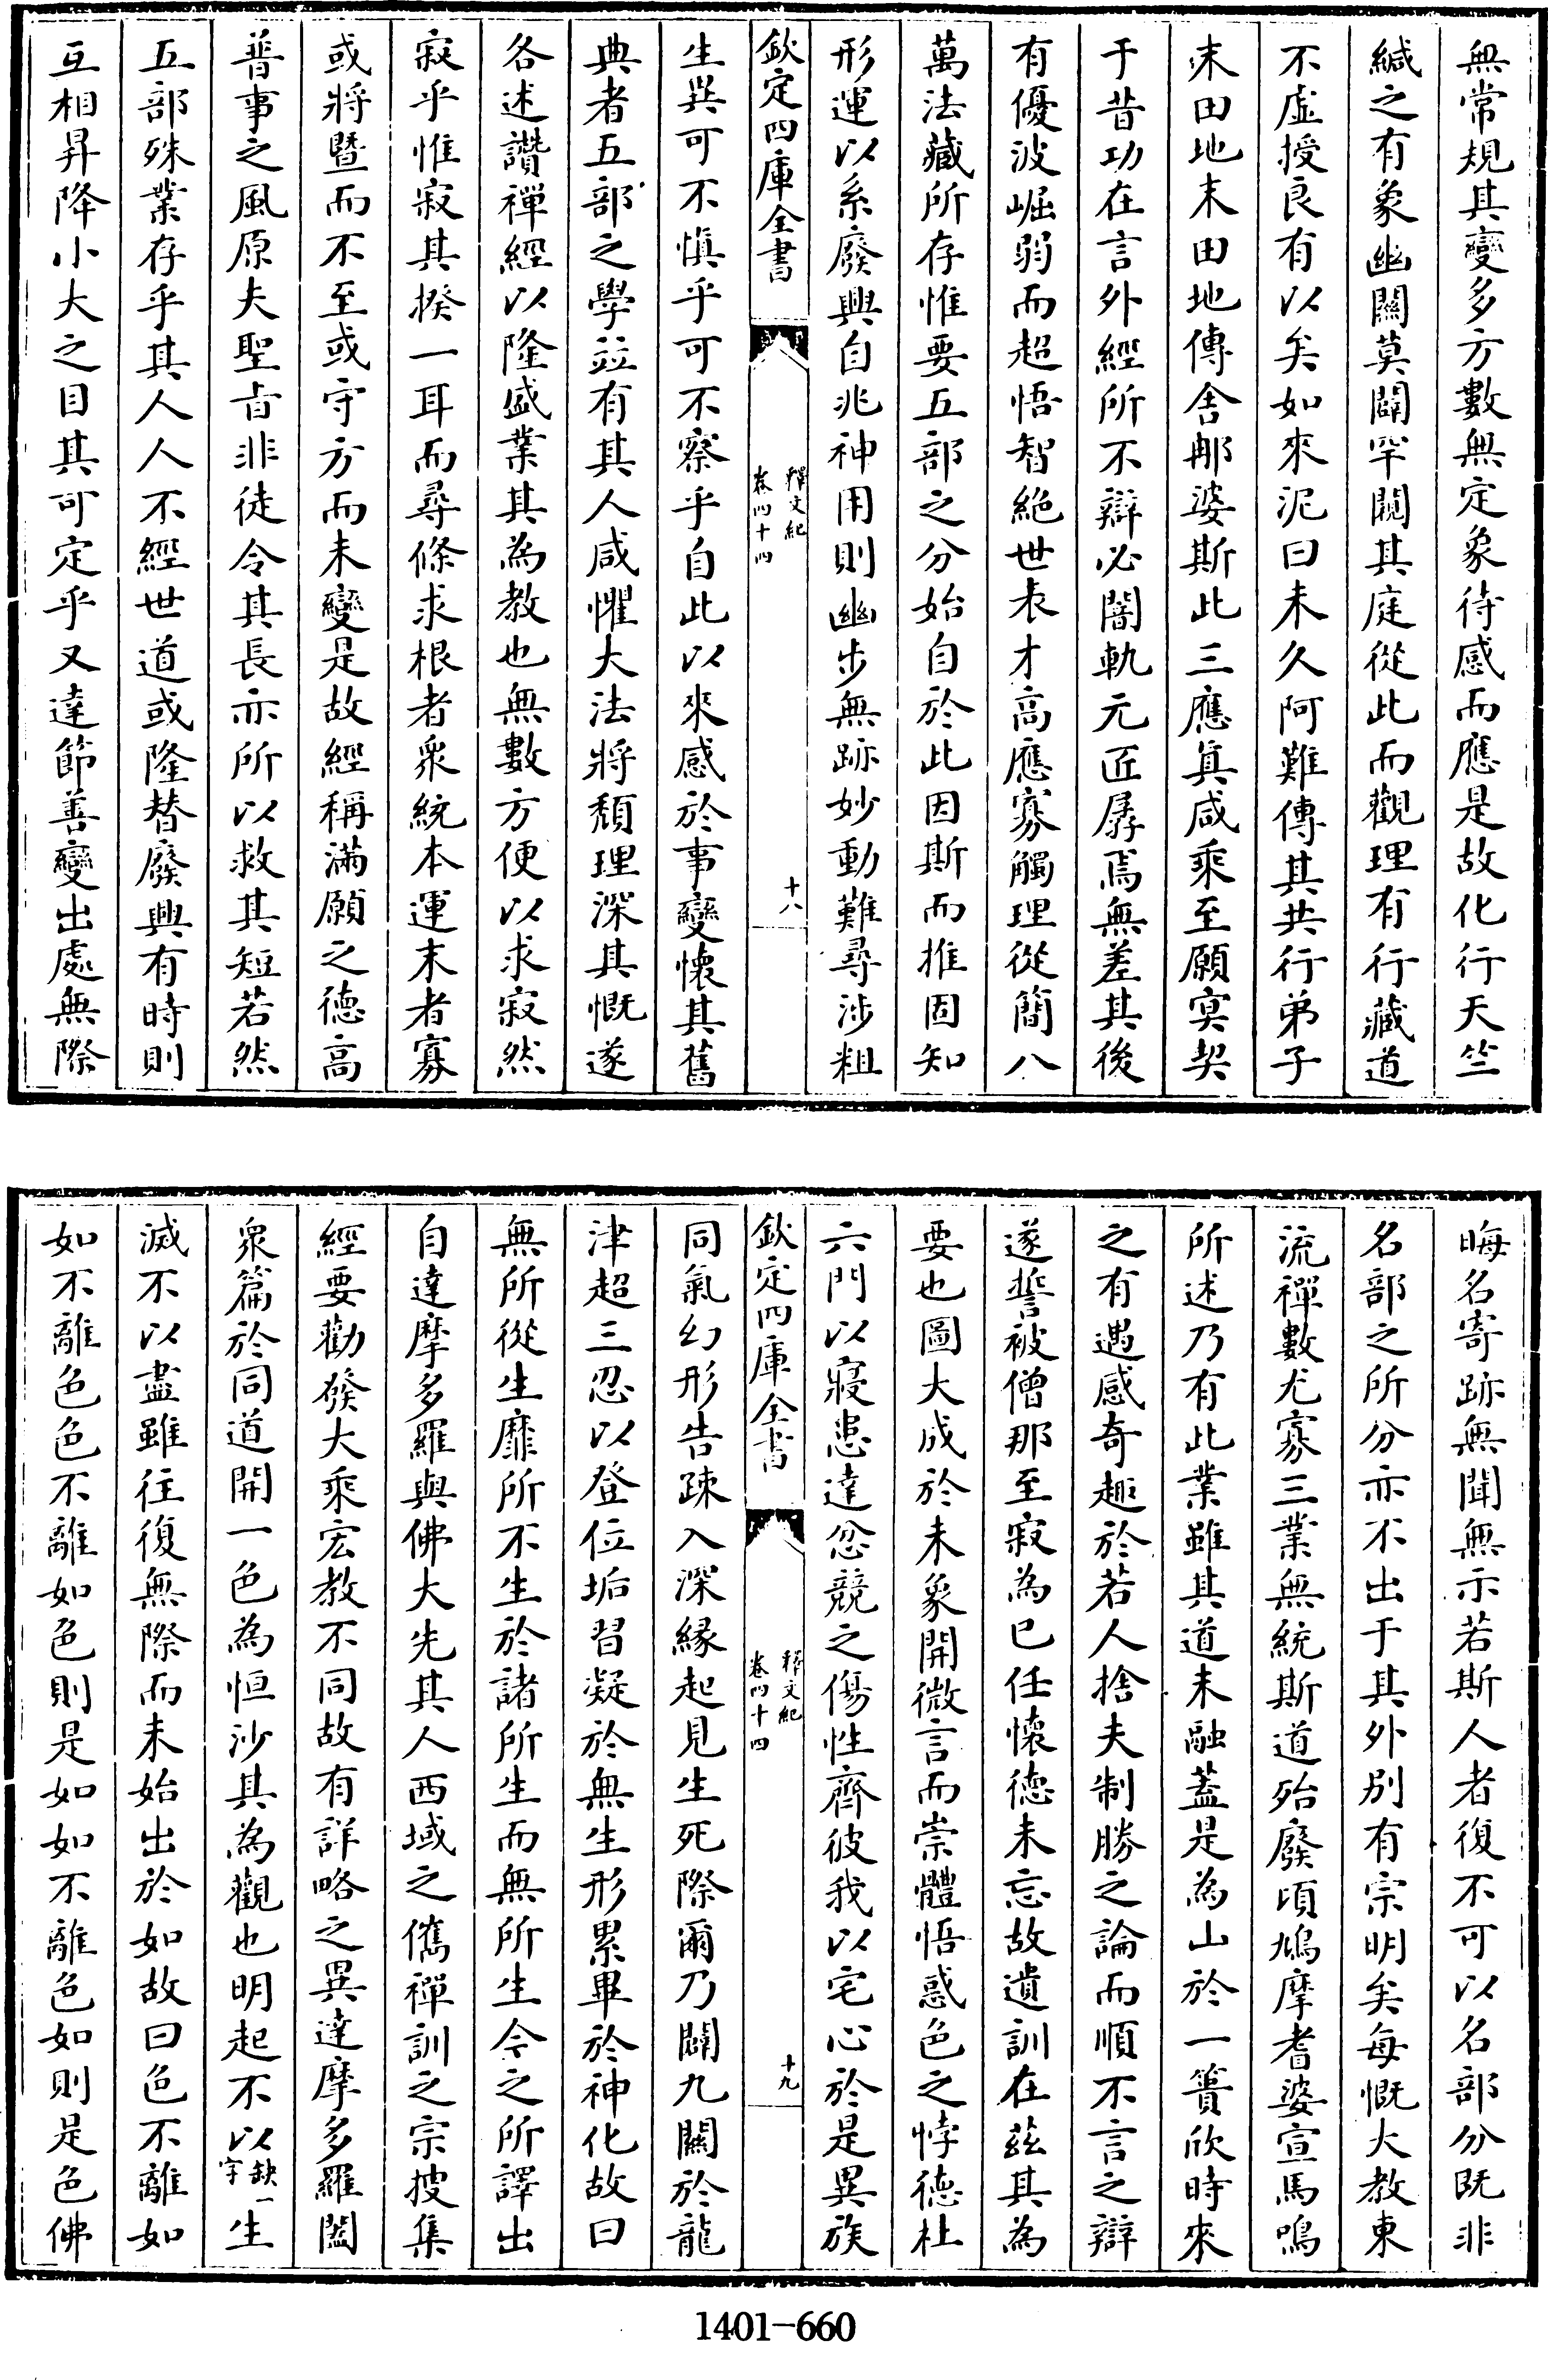 無常規其變多方數無定象待感而應是故化行天竺
緘之有象幽關莫闢罕闚其庭從此而觀理有行藏道
不虛授良有以矣如來泥曰未久阿難傳其共行弟子
末田地末田地傳舍那婆斯此三應真咸乘至願冥契
于昔功在言外經所不辯必闇軌元匠孱焉無差其後
有優波崛弱而超悟智絶世表才高應寡觸理從簡八
萬法藏所存惟要五部之分始自於此因斯而推固知
形運以系廢興自兆神用則幽步無跡妙動難尋涉粗
欽定四庫全書
釋文紀
卷四十四
十八
生異可不慎乎可不察乎自此以來感於事變懷其舊
典者五部之學並有其人咸懼大法將頽理深其慨遂
各述讚禪經以隆盛業其為教也無數方便以求寂然
寂乎惟寂其揆一耳而尋條求根者衆統本運末者寡
或將暨而不至或守方而未變是故經稱滿願之德高
普事之風原夫聖旨非徒令其長亦所以救其短若然
五部殊業存乎其人人不經世道或隆替廢興有時則
互相昇降小大之目其可定乎又達節善變出處無際
晦名寄跡無聞無示若斯人者復不可以名部分既非
名部之所分亦不出于其外别有宗明矣每慨大教東
流禪數尤寡三業無統斯道殆廢頃鳩摩耆婆宣馬鳴
所述乃有此業雖其道未融蓋是為山於一簣欣時來
之有遇感奇趣於若人捨夫制勝之論而順不言之辯
遂誓被僧那至寂為已任懷德未忘故遺訓在茲其為
要也圖大成於未象開微言而崇體悟惑色之悖德杜
六門以寢患達忿競之傷性齊彼我以宅心於是異族
欽定四庫全書
釋文紀
卷四十四
十九
同氣幻形告疎入深縁起見生死際爾乃闢九關於龍
津超三忍以登位垢習凝於無生形累畢於神化故曰
無所從生靡所不生於諸所生而無所生今之所譯出
自達摩多羅與佛大先其人西域之儁禪訓之宗搜集
經要勸發大乘宏教不同故有詳略之異達摩多羅闔
衆篇於同道開一色為恒沙其為觀也明起不以缺一字生
滅不以盡雖往復無際而未始出於如故曰色不離如
如不離色色不離如色則是如如不離色如則是色佛
1401-660